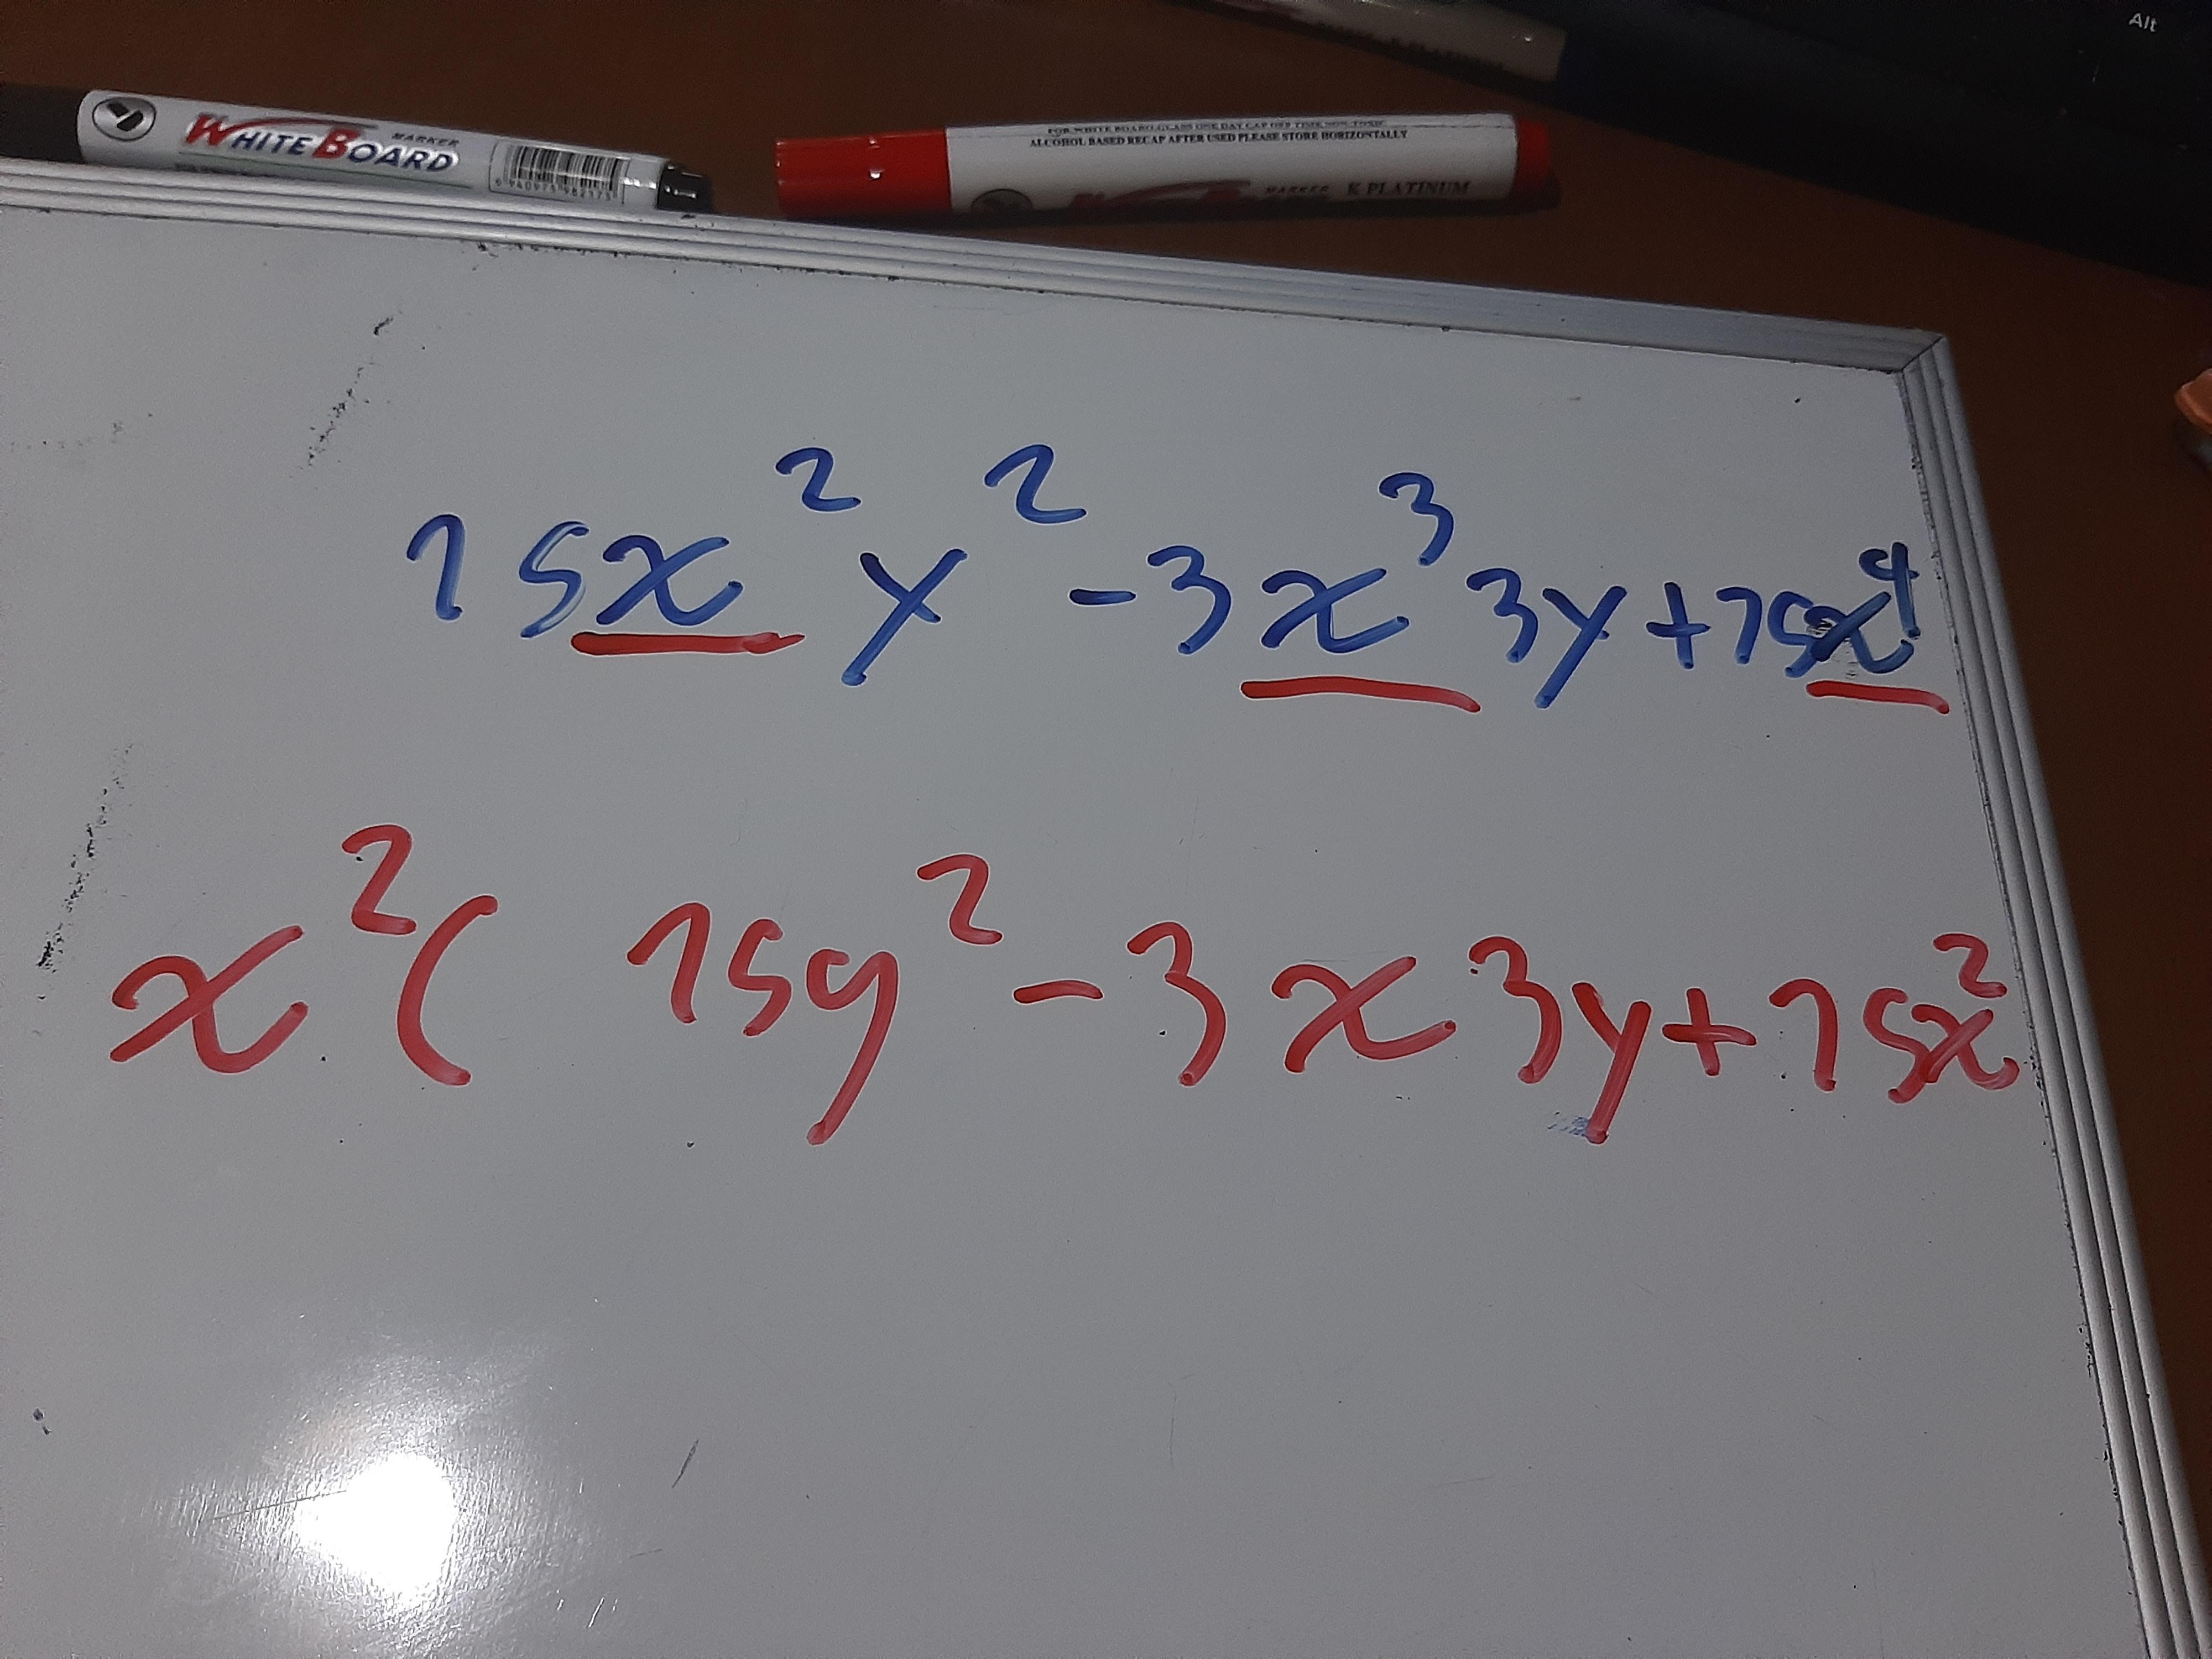 Alt
WHITEBOARD MARKER
FOR WHITE BOARD.GLASS ONE DAY CAP OFF TIME NON-TOXIC
ALCOHOL BASED RECAP AFTER USED PLEASE STORE HORIZONTALLY
MARKER K PLATINUM
15x²y² -3x³3y+15x⁴
x²( 15y² -3x3y+15x²